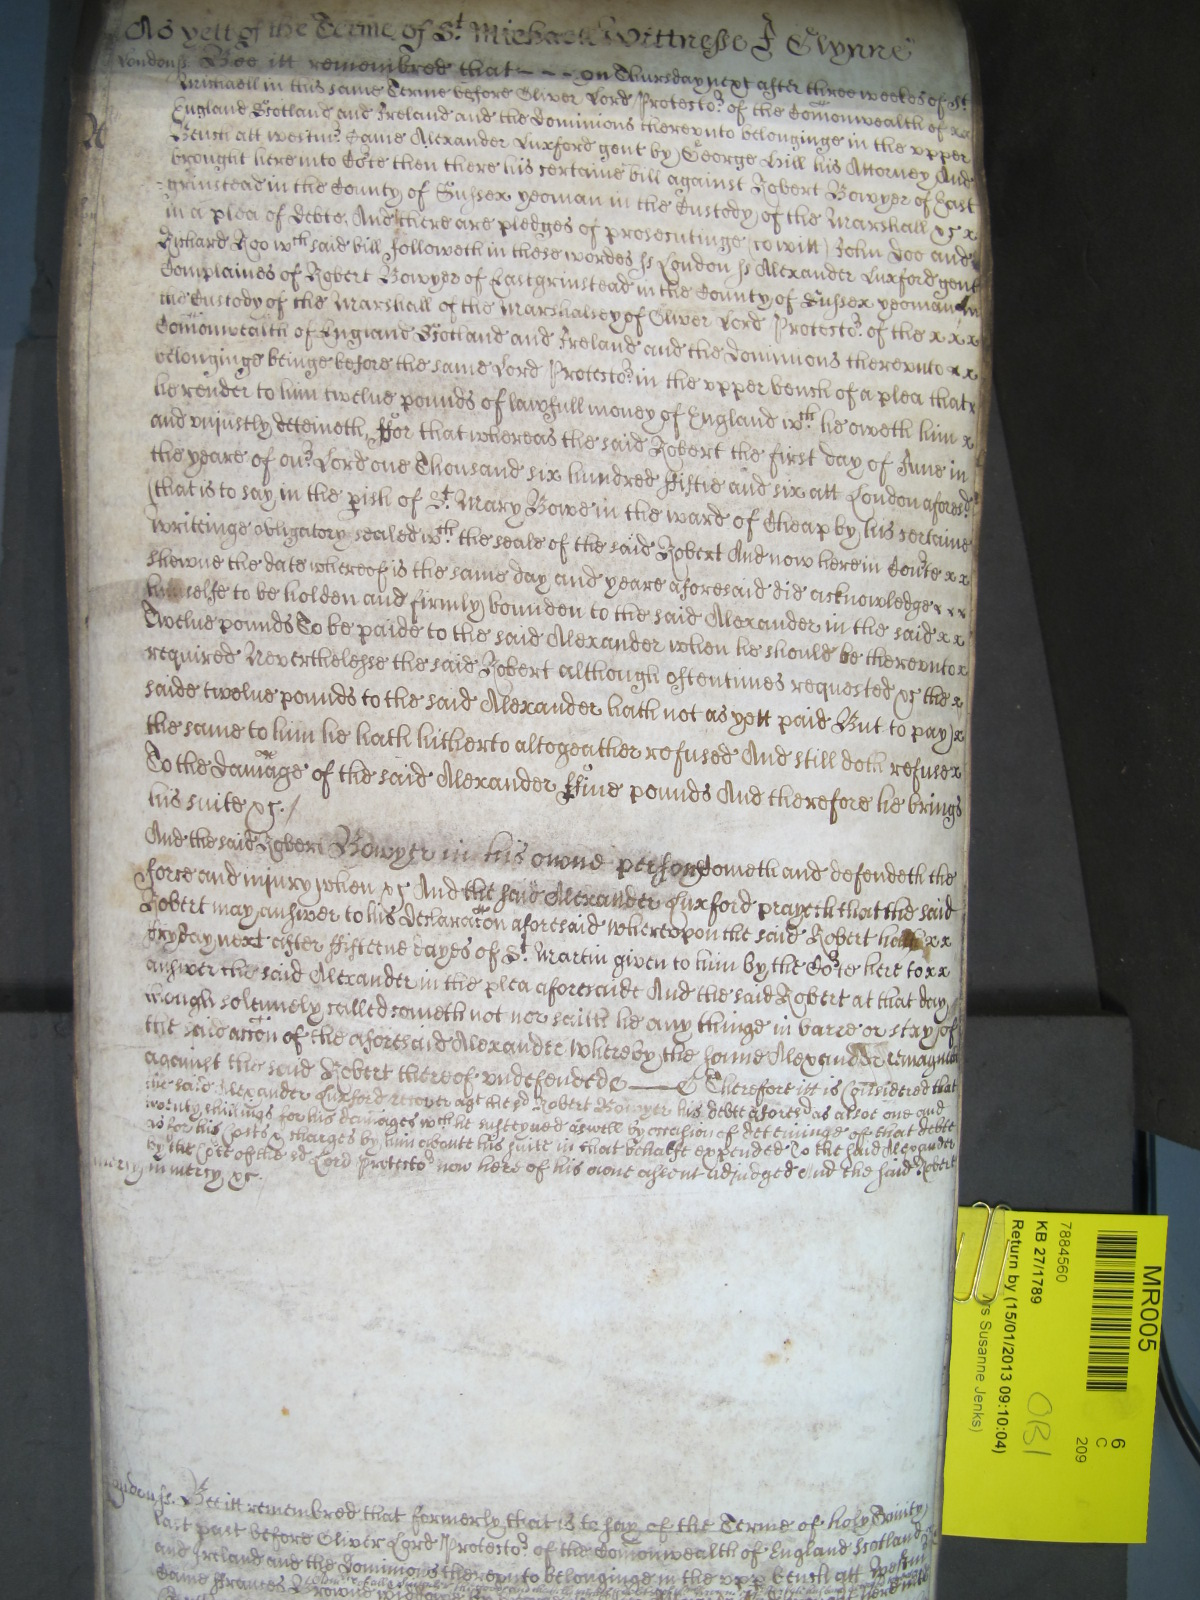 As yett of the Terme of St Michaell Wittnesse J Glynne
London ss Bee itt remembred that - - - on Thursday next after three weekes of St
Michaell in this same Terme before Oliver Lord Protector of the Comonwealth of x x
England Scotland and Ireland and the Dominions thereunto belonginge in the upper
Bench att westmr Came Alexander Luxford gent by George Hill his Attorney And
brought here into Cote then there his certaine bill against Robert Bowyer of East
grinstead in the County of Sussex yeoman in the Custody of the Marshall &c x
in a plea of Debte. And there are pledges of prosecutinge (to witt) John Doo and
Richard Roo wch said bill followeth in these wordes ss London ss Alexander Luxford gent
Complaines of Robert Bowyer of Eastgrinstead in the County of Sussex yeoman in
the Custody of the Marshall of the Marshalsey of Oliver Lord Protector of the x x x
Comonwealth of England Scotland and Ireland and the Dominions thereunto x x
belonginge beinge before the same Lord Protector in the upper bench of a plea that x
he render to him twelve pounds of lawfull money of England wch he oweth him x
and uniustly deteineth, ffor that whereas the said Robert the first day of June in
the yeare of our Lord one Thousand six hundred fiftie and six att London aforesd
(that is to say in the pish of St Mary Bowe in the ward of Cheap by his certaine
writtinge obligatory sealed wth the seale of the said Robert And now here in Courte x x
shewne the date whereof is the same day and yeare aforesaid did acknowledge x x x
himselfe to be holden and firmly bounden to the said Alexander in the said x x
Twelve pounds To be paide to the said Alexander when he should be thereunto x
required Neverthelesse the said Robert although oftentimes requested &c the x
saide twelve pounds to the said Alexander hath not as yett paid But to pay x
the same to him he hath hitherto altogeather refused And still doth refuse x
To the Damage of the said Alexander ffive pounds And therefore he brings
his suite &c. /
And the said Robert Bowyer in his owne person Cometh and defendeth the
force and iniury when &c And the said Alexander Luxford prayeth that the said
Robert may answer to his Declaracon aforesaid whereupon the said Robert hath x x
fryday next after fifteene dayes of St Martin given to him by the Cote here to x x
answer the said Alexander in the plea aforesaide And the said Robert at that day
though solemnely called cometh not nor saith he any thinge in barre or stay of
the said accon of the aforesaid Alexander whereby the same Alexander remayneth
against the said Robert thereof undefended Therefore itt is Considered that
the said Alexander Luxford recover agt the sd Robert Bowyer his debte aforesd as alsoe one and
twenty shillings for his damages wch he susteyned aswell by occasion of deteininge of that debte
as for his Costs & charges by him aboute his suite in that behalfe expended To the said Alexander
by the Cote of the sd Lord Protector now here of his owne assent adiudged And the said Robert
mercy in mercy &c.
London ss. Bee itt remembred that formerly that is to say of the Terme of holy Trinity
last past before Oliver Lord Protector of the Comonwealth of England Scotland
and Ireland and the Dominions thereunto belonginge in the upp bench att Westmr
Came Frances Browne widdowe by
MR005
6
C
209
7884560
KB 27/1789
OBI
Return by (15/01/2013 09:10:04)
Susanne Jenks)